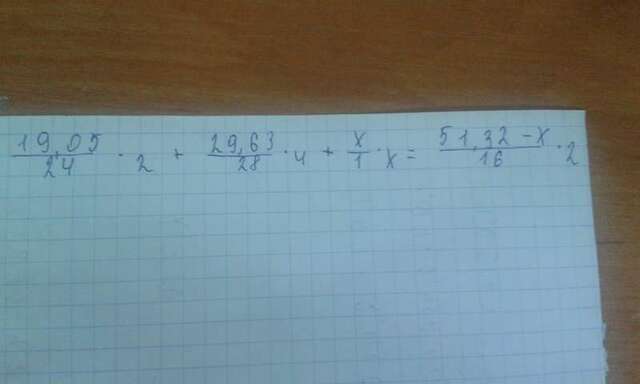 19,05/24 · 2 + 29,63/28 · 4 + x/1 · x = 51,32 - x/16 · 2